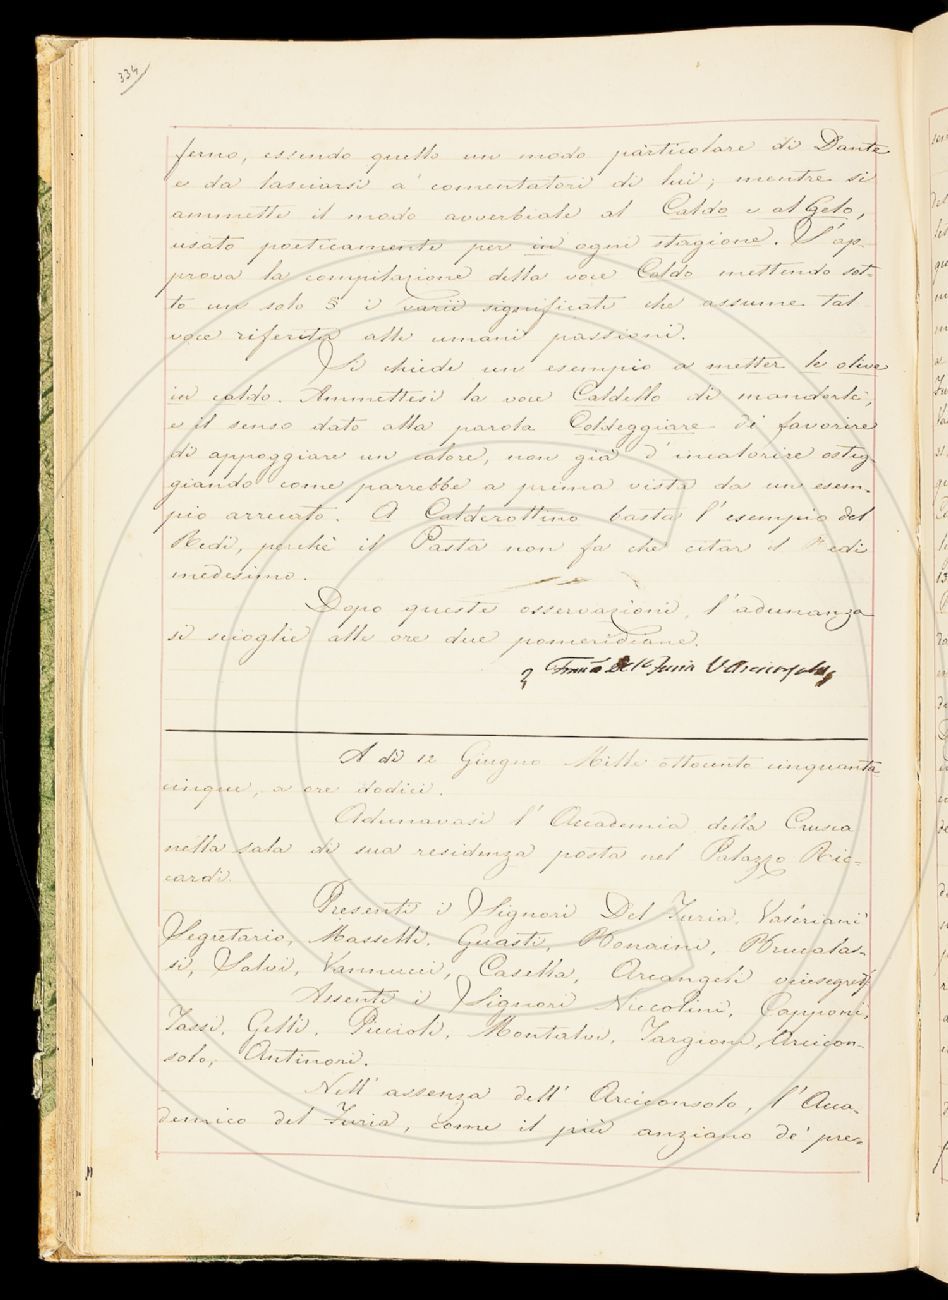 334
ferno, essendo quello un modo particolare di Dante
e da lasciarsi a' comentatori di lui; mentre si
ammette il modo avverbiale al Caldo e al Gelo,
usato poeticamente per in ogni stagione. S'ap-
prova la compilazione della voce Caldo mettendo sot-
to un solo § i varii significati che assume tal
voce riferita alle umani passioni.
Si chiede un esempio a metter le olive
in caldo. Ammettesi la voce Caldello di mandorle,
e il senso dato alla parola Caldeggiare di favorire
di appoggiare un calore, non già d'incalorire osteg-
giando come parrebbe a prima vista da un esem-
pio arrecato. A Calderottino basta l'esempio del
Redi, perchè il Pasta non fa che citar il Redi
medesimo.
Dopo queste osservazioni, l'adunanza
si scioglie alle ore due pomeridiane.
Del Furia
A dì 12 Giugno Mille ottocento cinquanta
cinque, a ore dodici.
Adunavasi l'Accademia della Crusca
nella sala di sua residenza posta nel Palazzo Ric-
cardi.
Presenti i Signori Del Furia, Valeriani
Segretario, Masselli, Guasti, Bonaini, Brucalas-
si, Salvi, Vannucci, Casella, Arcangeli vicesegret.
Assenti i Signori Niccolini, Capponi,
Tassi, Gelli, Piccioli, Montalvi, Targioni, Arcicon-
solo, Antinori.
Nell'assenza dell'Arciconsolo, l'Acca-
demico del Furia, come il più anziano de' pre-